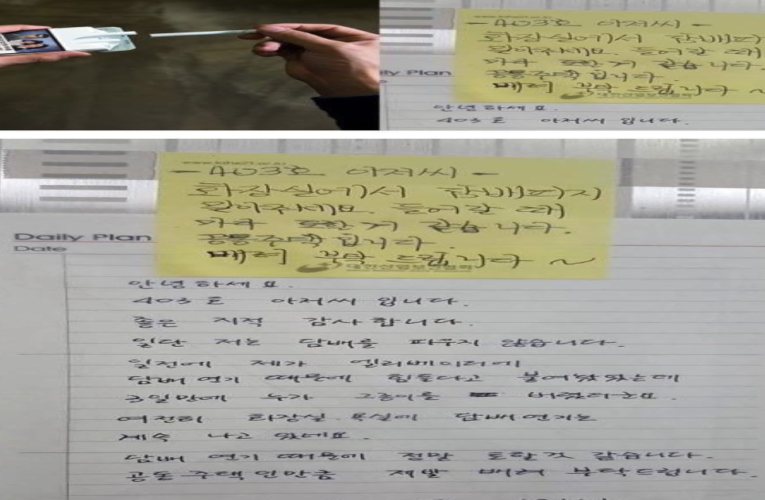 - 403호 아저씨 -
화장실에서 담배피지
공동주택 입니다.
배려 부탁 드립니다 ~
안녕하세요.
403호 아저씨 입니다.
Daily Plan
Date
- 403호 아저씨 -
화장실에서 담배피지
말아주세요. 들어갈 때
마다 거 같습니다.
공동주택 입니다.
배려 부탁 드립니다 ~
대한산업보건협회
안녕하세요.
403호 아저씨 입니다.
좋은 지적 감사합니다.
일단 저는 담배를 피우지 않습니다.
일전에 제가 엘리베이터에
담배 연기 때문에 힘들다고 붙여놨었는데
3일만에 누가 그종이를 버렸더군요.
여전히 화장실.욕실에 담배연기는
계속 나고 있네요.
담배 연기 때문에 정말 토할것 같습니다.
공동 주택인만큼 제발 배려 부탁드립니다.